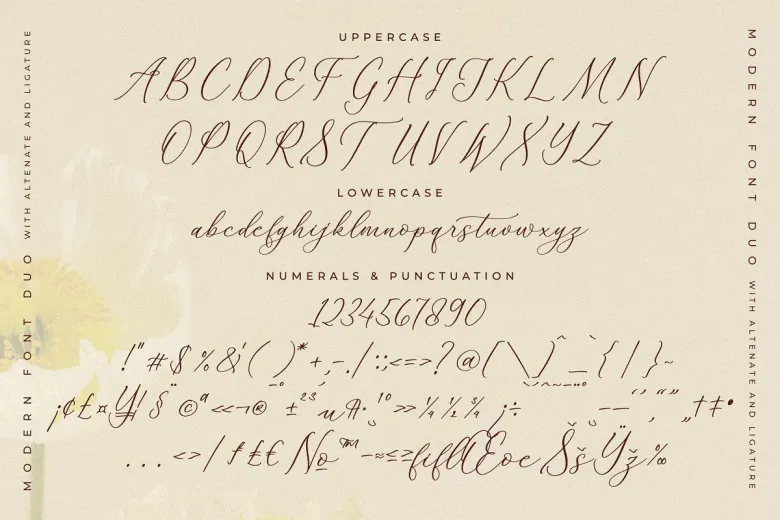 UPPERCASE
ABCDEFGHIJKLMN
OPQRSTUVWXYZ
LOWERCASE
abcdefghijklmnopqrstuvwxyz
NUMERALS & PUNCTUATION
1234567890
!"#$%&'()*+,-./:;<=>?@[\]^_`{|}~
¡¢£¤¥¦§¨©ª«¬®¯°±²³´µ¶·¸¹º»¼½¾¿÷ˆˇ˘˙˚˛˜˝–—‘’‚“”„†‡•
...‹›⁄ƒ₤€№™−≈≤≥fiflŒœŠšŸž‰
MODERN FONT DUO WITH ALTENATE AND LIGATURE
MODERN FONT DUO WITH ALTENATE AND LIGATURE